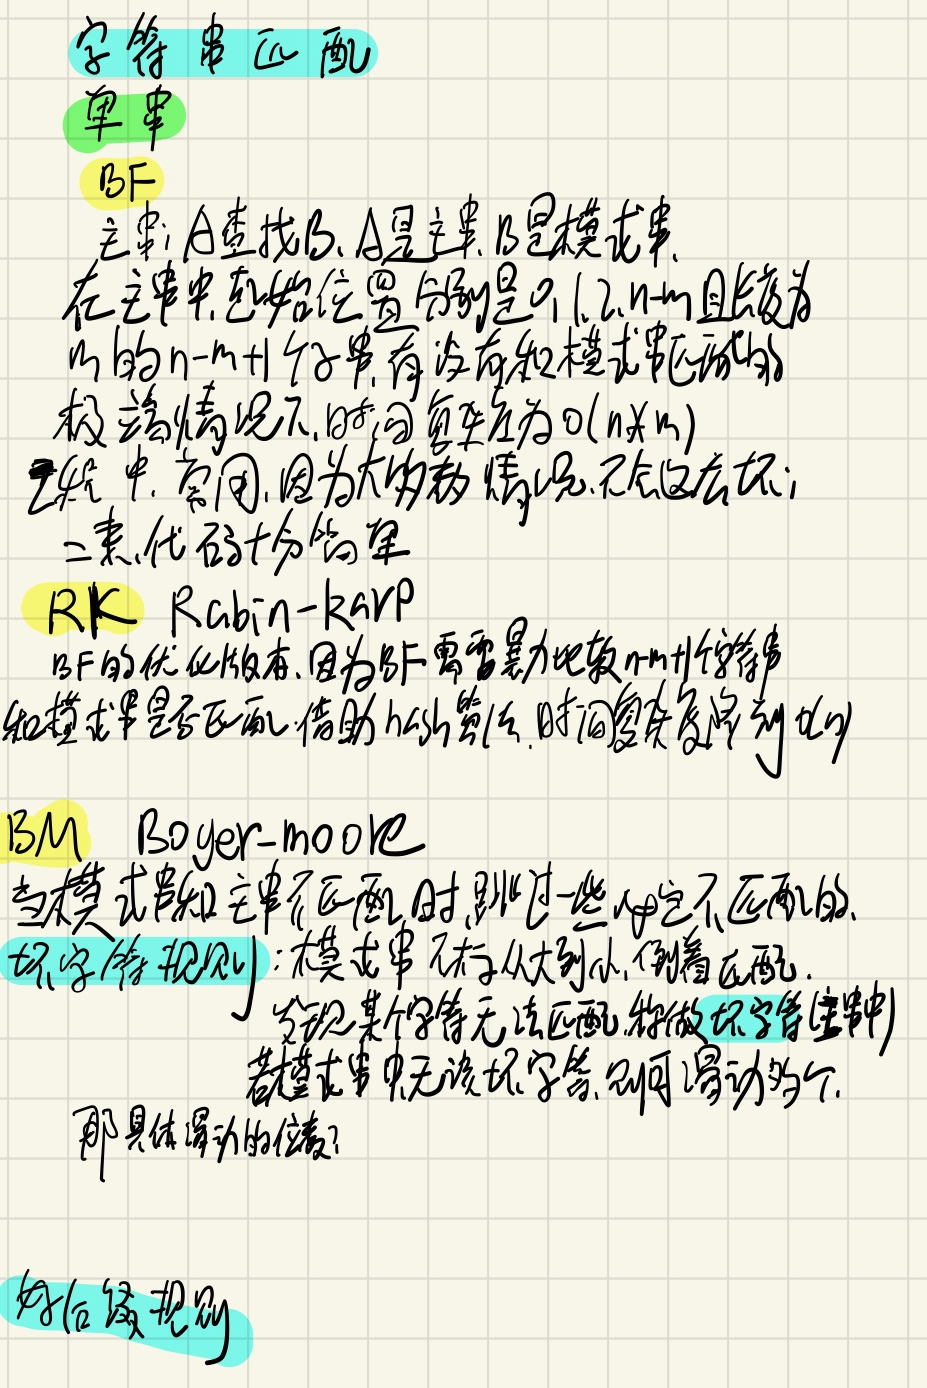 字符串匹配
单串
BF
主串: A查找B, A是主串, B是模式串,
在主串中,起始位置分别是0,1,2,n-m且长度为
m的n-m+1个子串,有没有和模式串匹配的
极端情况下,时间复杂度为O(n*m)
中,常用,因为大多数情况,不会这么坏;
二来,代码十分简单
RK Rabin-karp
BF的优化版本,因为BF需要暴力比较n-m+1个字符串
和模式串是否匹配,借助hash算法,时间复杂度降到O(n)
BM Boyer-moore
当模式串和主串不匹配时,跳过一些肯定不匹配的,
坏字符规则:模式串下标从大到小,倒着匹配.
发现某个字符无法匹配,称做坏字符(主串中)
若模式串中无该坏字符,则可滑动多个,
那具体滑动的位数?
好后缀规则